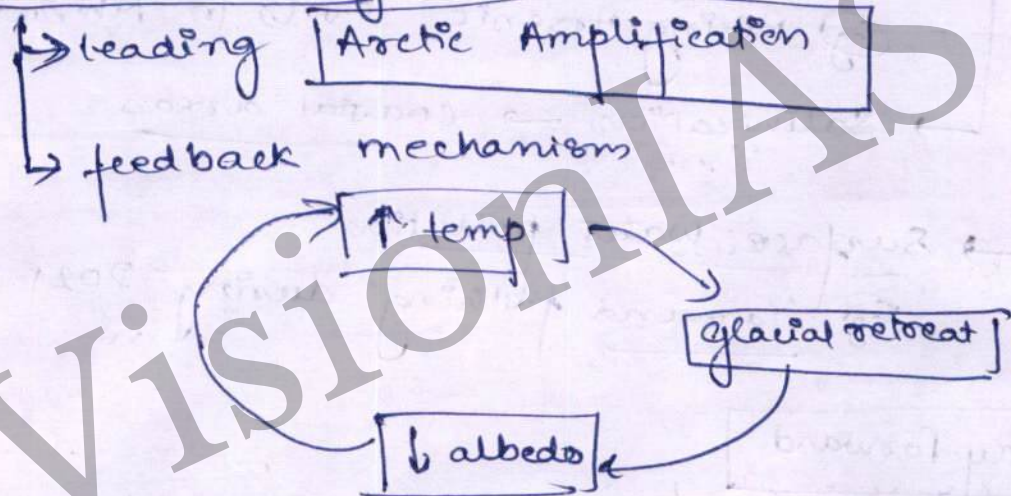 → leading Arctic Amplification
↳ feedback mechanism
↑ temp
Glacial retreat
↓ albedo
VisionIAS